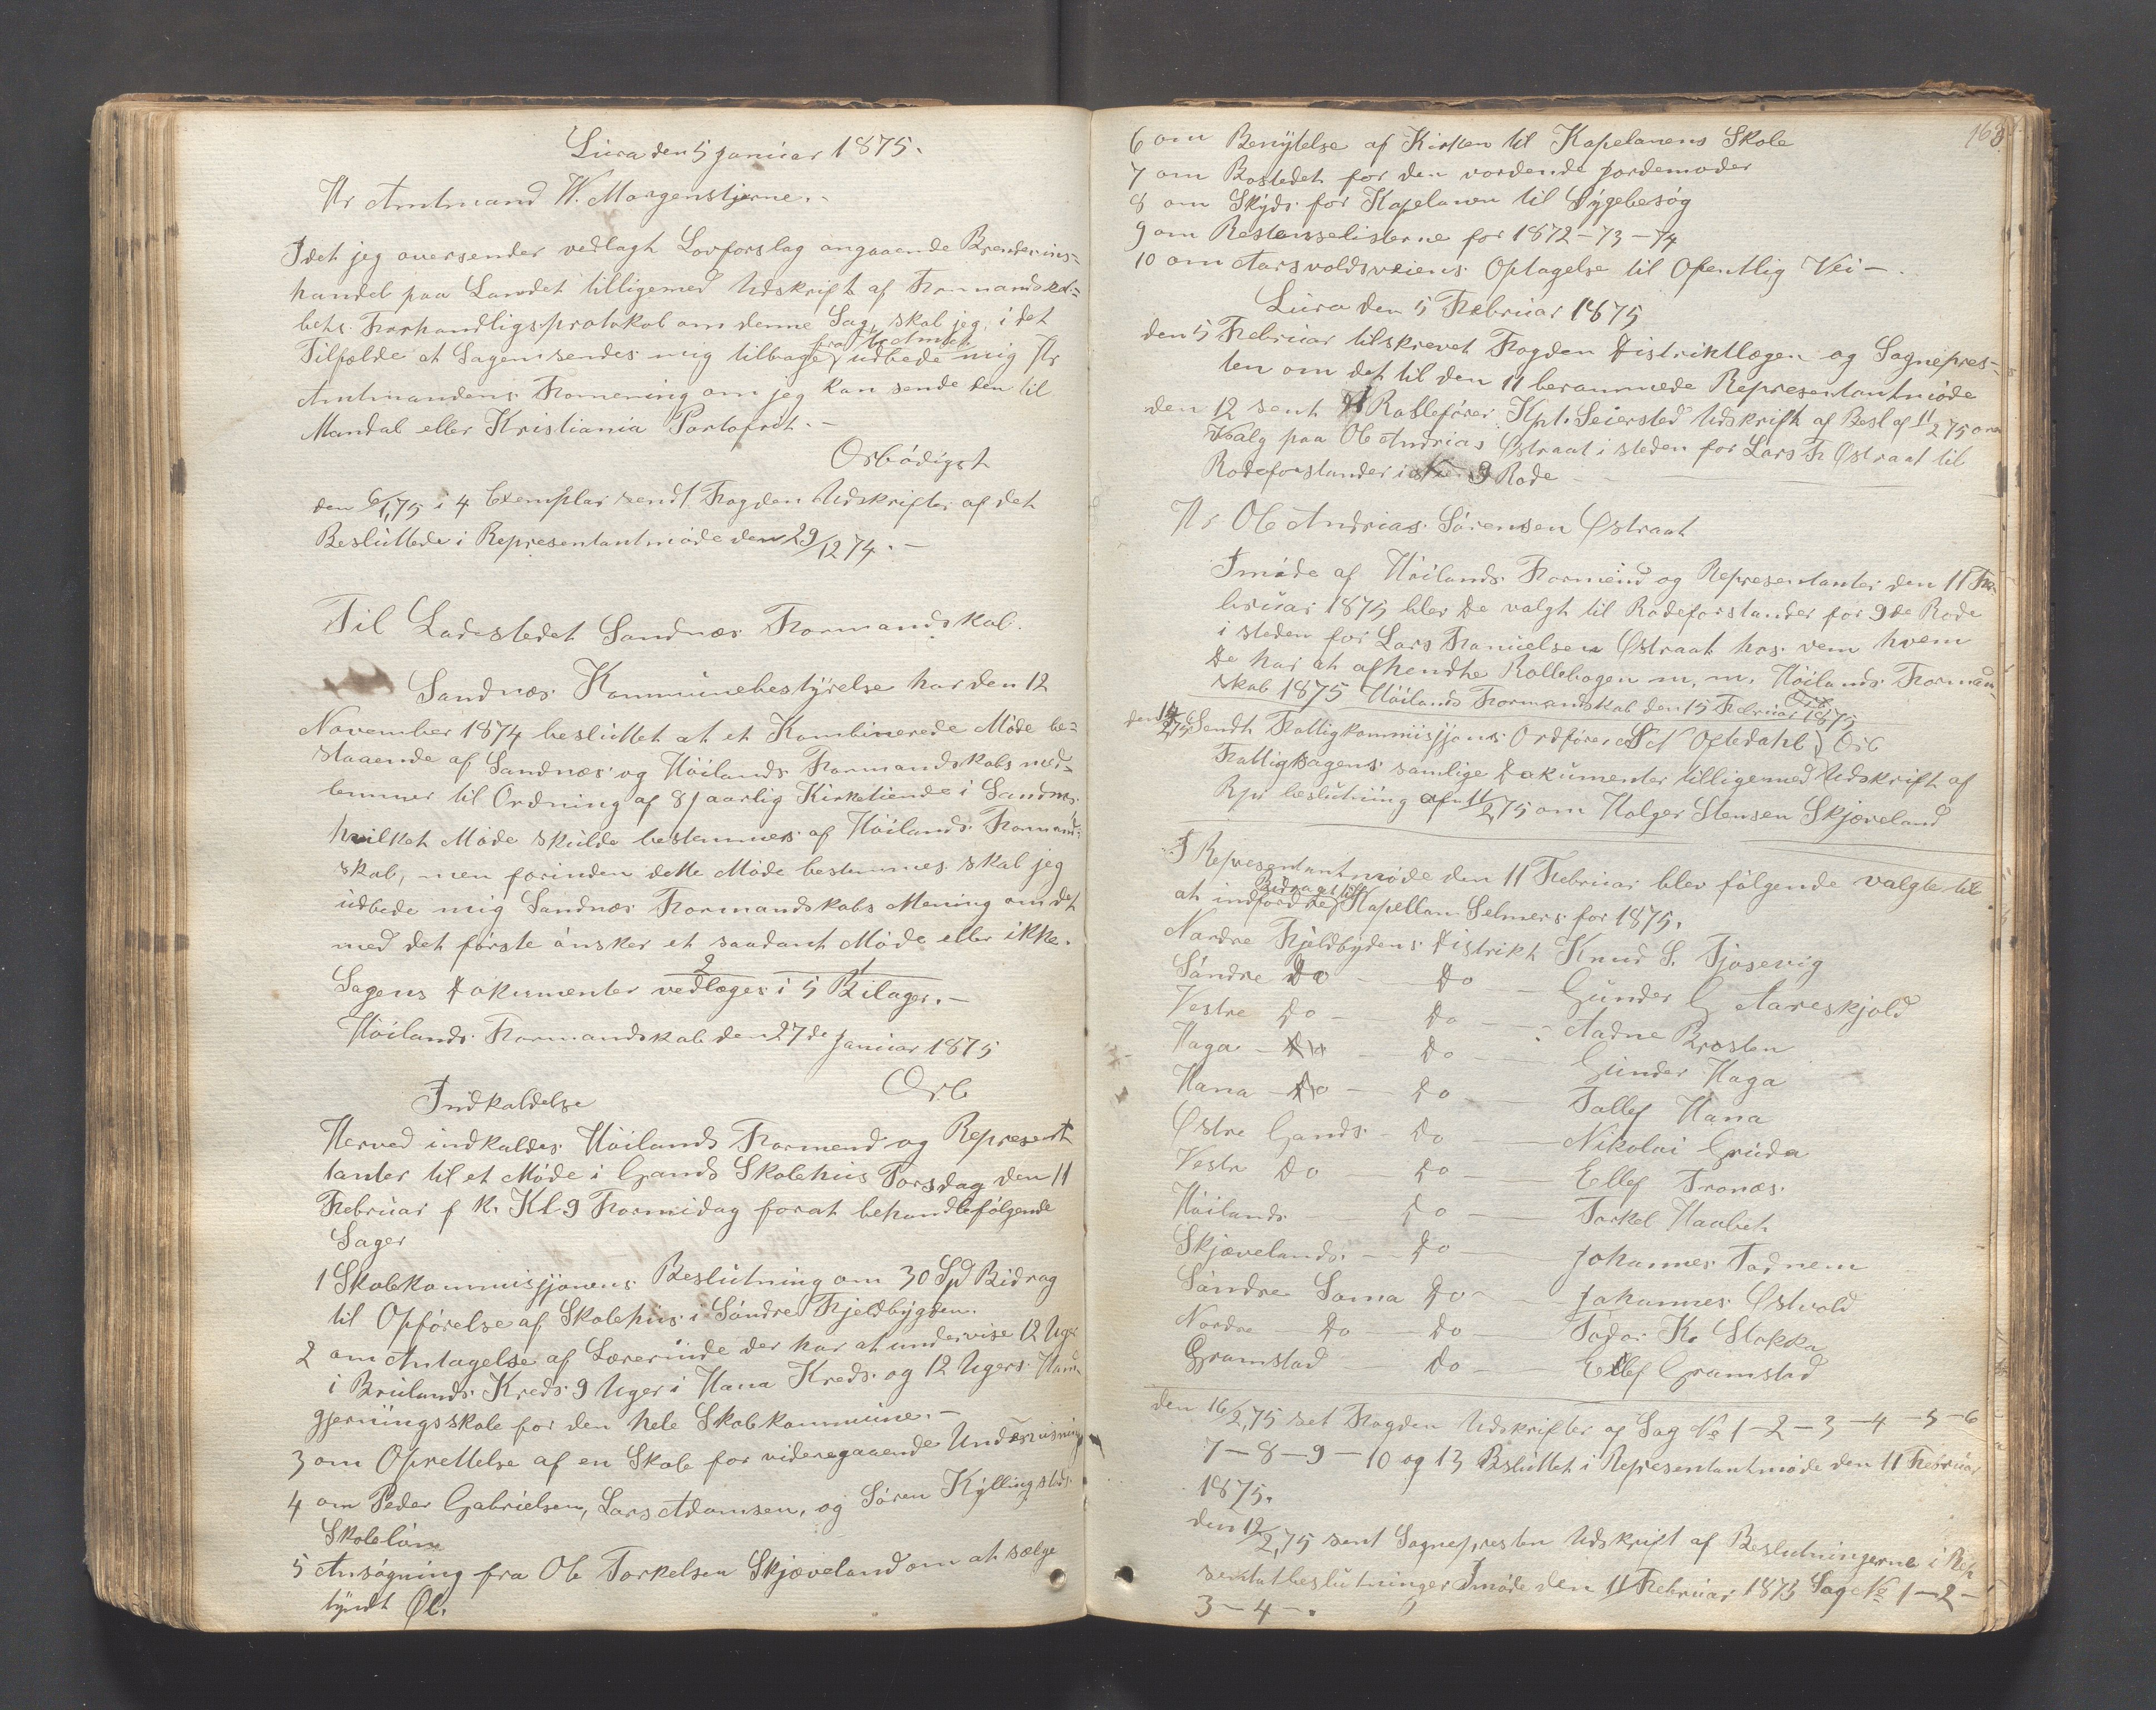 Lura den 5 Januar 1875.
Hr Amtmand W. Morgenstjerne.-
Idet jeg oversender vedlagt Lovforslag angaaende Brendevins=
handel paa Landet tilligemed Udskrift af Formandska=
bets Forhandligsprotokol om denne Sag, skal jeg, i det
Tilfælde at Sagen sendes mig tilbage fra Hr Amtet udbede mig Hr
Amtmandens Formening om jeg kan sende den til
Mandal eller Kristiania Portofrit.-
Orbödigst
den 6/1,75 i 4 Exemplar sendt Fogden Udskrifter af det
Besluttede i Representantmöde den 29/12 74.-
Til Ladestedet Sandnæs Formandskab.
Sandnæs Kommunebestyrelse har den 12
November 1874 besluttet at et Kombinerede Möde be=
staaende af Sandnæs og Höilands Formandskabs med=
lemmer til Ordning af 8 aarlig Kirketiende i Sandnæs
hvilket Möde skulde bestemmes af Höilands Formand=
skab, men forinden dette Möde bestemmes skal jeg
udbede mig Sandnæs Formandskabs Mening om det
med det förste önsker et saadant Möde eller ikke.
Sagens Dokumenter vedlæges i 5 Bilager.-
Höilands Formandskab den 27de Januar 1875
Orb
Indkaldelse
Herved indkaldes Höilands Formend og Represent
tanter til et Möde i Gands Skolehus Torsdag den 11
Februar f K. Kl. 9 Formidag forat behandle fölgende
Sager
1 Skolekommissjonens Beslutning om 30 Spd Bidrag
til Opförelse af Skolehus i Söndre Fjeldbygden.
2 om Antagelse af Lærerinde der har at undervise 12 Uger
i Brulands Kreds 9 Uger i Hana Kreds og 12 Ugers Hand
gjerningsskole for den hele Skolekommune.-
3 om Oprettelse af en Skole for videregaaende Undervisning
4 om Peder Gabrielsen, Lars Adamsen, og Sören Kyllingstads
Skolelön
5 Ansögning fra Ole Torkelsen Skjæveland om at sælge
tyndt Öl.
163
6 om Benytelse af Kirken til Kapelanens Skole
7 om Bostedet for den vordende Jordemoder
8 om Skyds for Kapelanen til Sygebesög
9 om Restanselisterne for 1872-73-74
10 om Aarsvoldsveiens Optagelse til Ofentlig Vei-.
Lura den 5 Februar 1875
den 5 Februar tilskrevet Fogden Distriktlægen og Sognepres=
ten om det til den 11 berammede Representantmöde
den 12 sent Rolleförer Kpt. Seiersted Udskrift af Besl af 11/2 75 om
Valg paa Ole Andrias Østraat i steden for Lars F Østraat til
Rodeforstander i 9 Rode
Hr Ole Andrias Sörensen Østraat
I möde af Höilands Formend og Representanter den 11 Fe-
bruar 1875 blev De valgt til Rodeforstander for 9de Rode
i steden for Lars Danielsen Østraat hos vem hvem
De har at afhendte Rollebogen m, m. Höilands Forman
skab 1875 Höilands Formandskab den 15 Februar 1875
Orb
den 14/2 75 Sendt Fattigkommissjons Ordförer S A Oftedahl
Fattigsagens samlige Dokumenter tilligemed Udskrift af
Rpr beslutning af 11/2,75 om Holger Stensen Skjæveland
I Representantmöde den 11 Februar blev fölgende valgte til
at indfordre Bidraget til Kapellan Selmers for 1875.
Nordre Fjeldbydens Distrikt Knud S. Tjösevig
Söndre Do - Do - Gunder G Aareskjold
Vestre Do - Do - Aadne Brosten
Haga - Do - Do - Gunder Haga
Hana - Do - Do - Tollef Hana
Østre Gands Do - Nikolai Gruda
Vestre Do - Do - Ellef Tronæs
Höilands - Do - Torkel Haabet
Skjævelands - Do - Johannes Fodnem
Söndre Soma Do - Johannes Østvold
Nordre - Do - Do - Todor K. Stokka
Gramstad - Do - Ellef Gramstad
Den 16/2,75 set Fogden Udskrifter af Sag No 1-2-3-4-5-6
7-8-9-10 og 13 Besluttet i Representantmöde den 11 Februar
1875.
den 12/2,75 sent Sognepresten Udskrift af Beslutningerne i Rep
sentatbeslutninger I möde den 11 Februar 1875 Sag No 1-2-
3-4-.